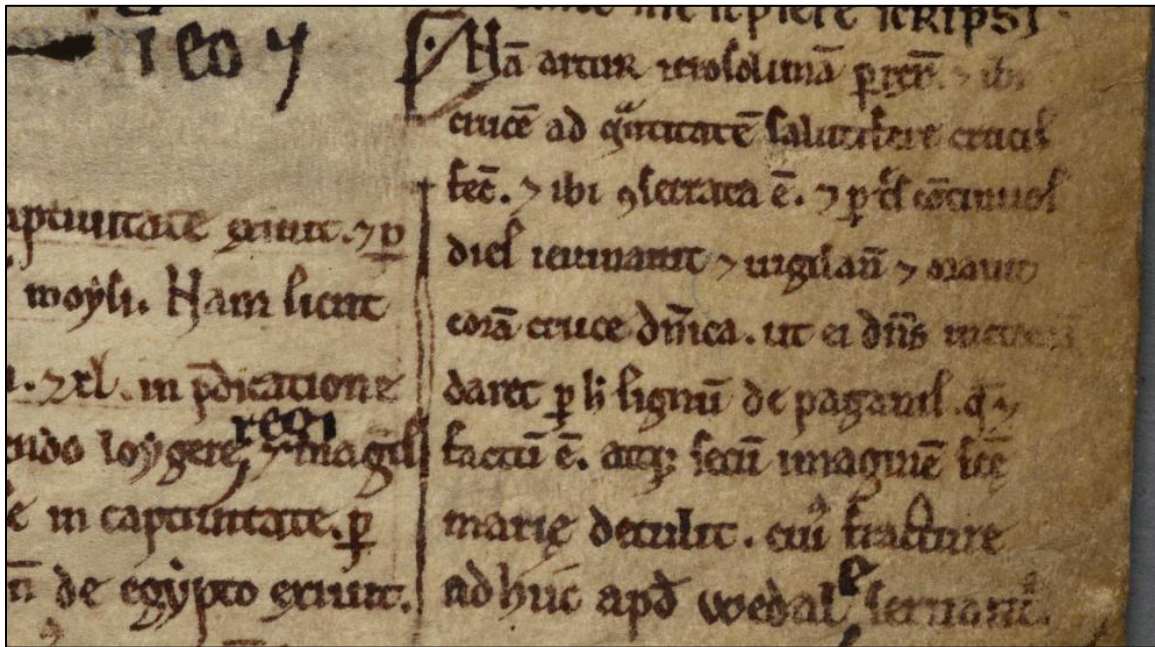 captiuitate exiuit. ⁊ p̱
moẏsi. Nam sicut
⁊ xl. in p̄dicatione
loẏgere, regi ⁊ magis
in captiuitate. ꝑ
de egẏpto exiuit.
scripsi
Nā artur ierosolimā ꝑrex̄. ⁊ ibi
crucē ad qͣntitatē salutifere crucis
fec̄. ⁊ ibi ꝯsecrata ē. ⁊ ꝑ t͛s cōtinuos
dies ieiunauit ⁊ uigilau̅ ⁊ orauit
corā cruce dn̄ica. ut ei dn̄s uictoriā
daret ꝑ h̵ lignū de paganis. qd̵ ⁊
factū ē. atq; secū imaginē sc̄ę
marię detulit. cui᷒ fracture
adhuc apd̵ wedale seruant᷑.